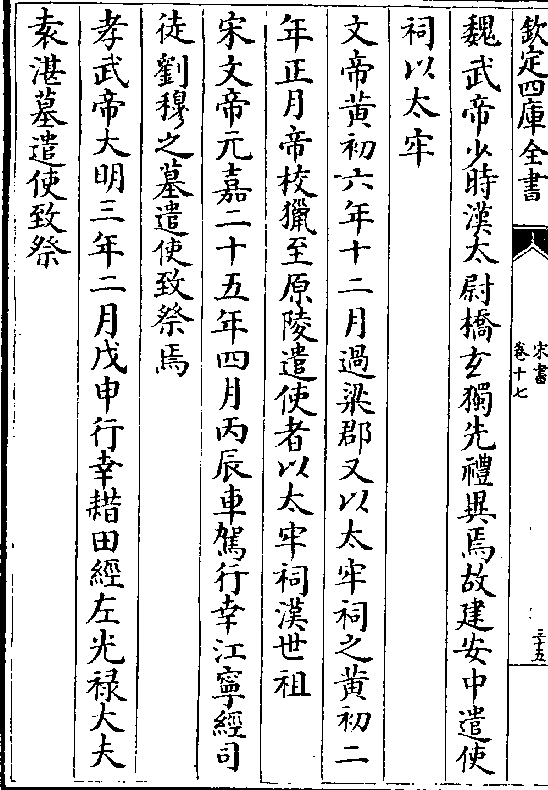 欽定四庫全書
宋書
卷十七
三十五
魏武帝少時漢太尉橋玄獨先禮異焉故建安中遣使
祠以太牢
文帝黄初六年十二月過梁郡又以太牢祠之黄初二
年正月帝校獵至原陵遣使者以太牢祠漢世祖
宋文帝元嘉二十五年四月丙辰車駕行幸江寧經司
徒劉穆之墓遣使致祭焉
孝武帝大明三年二月戊申行幸耤田經左光禄大夫
袁湛墓遣使致祭